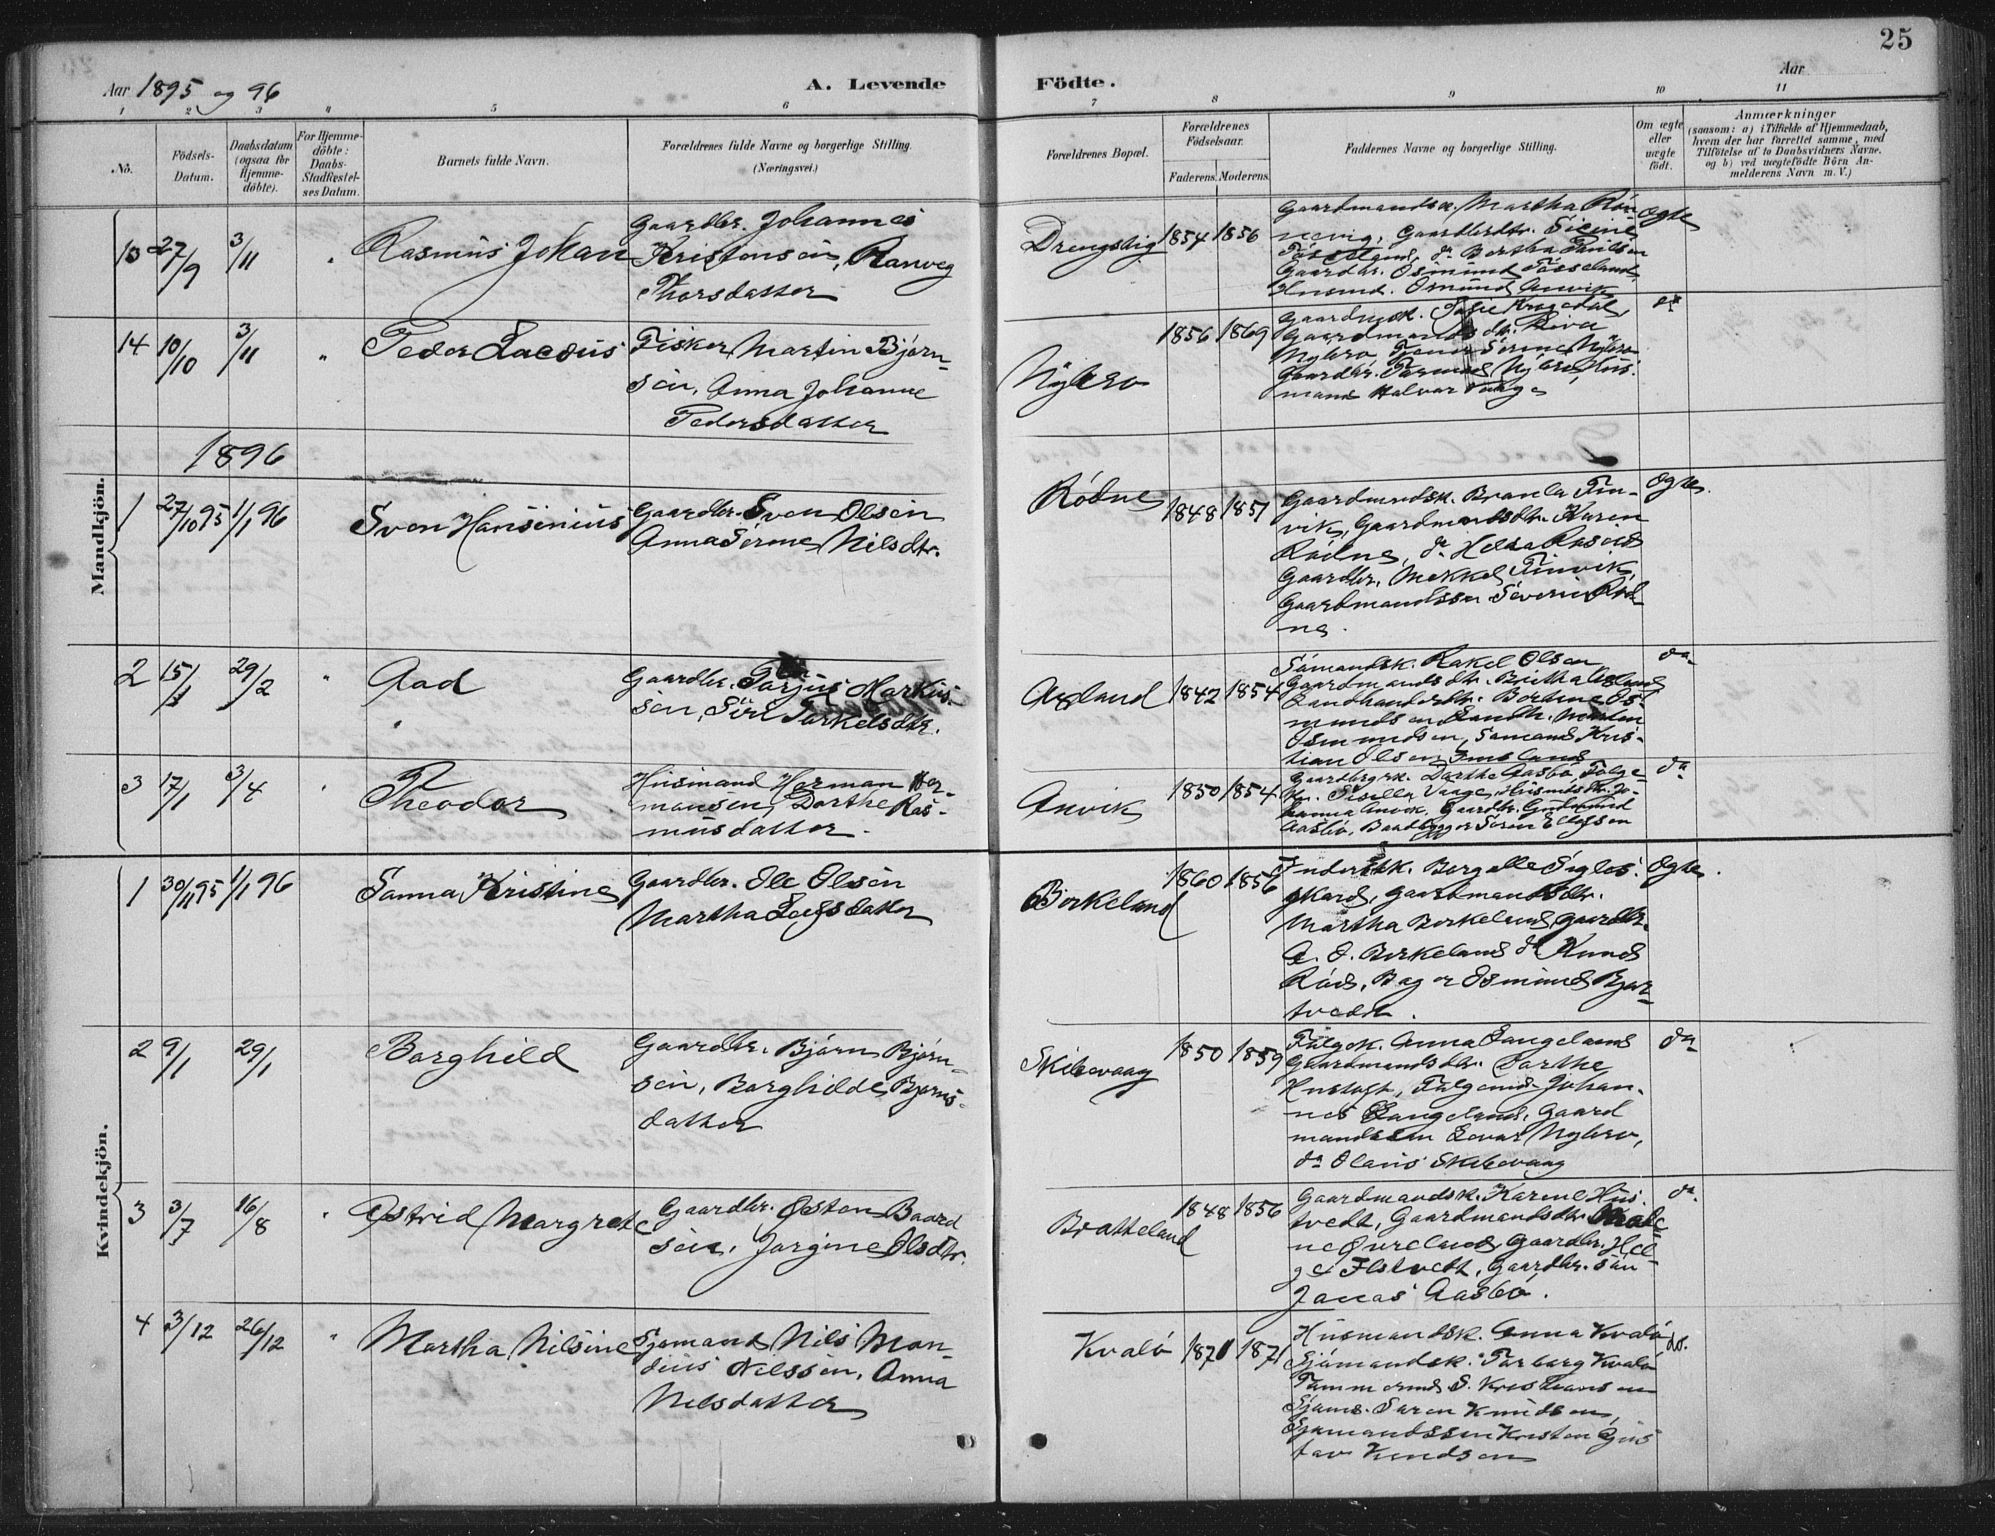 25
Aar 1895 og 96
A. Levende Födte.
Aar
1 2 3 " 5 6 7 8 9 10 11
No.
Födsels-Datum.
Daabsdatum (ogsaa for Hjemme-döbte).
For Hjemme-döbte: Daabs-Stadfæstel-ses Datum.
Barnets fulde Navn.
Forældrenes fulde Navne og borgerlige Stilling.
(Næringsvei.)
Forældrenes Bopæl.
Forældrenes Födselsaar.
Faderens. Moderens.
Faddernes Navne og borgerlige Stilling.
Om ægte eller uægte födt.
Anmærkninger
(saasom: a) i Tilfælde af Hjemmedaab,
hvem der har forrettet samme, med
Tilföielse af to Daabsvidners Navne.
og b) ved uægtefödte Börn An-
melderens Navn m. V.)
Mandkjön.
13 27/9 3/11 " Rasmus Johan
Gaardbr. Johannes
Kristensen, Ranveg
Thorsdatter
Drengstig 1854 1856
Gaardmandsk. Martha Røn
nevig, Gaardbrdtr. Sicine
Fosseland, do Bertha Paulsen
Gaardbr. Osmund Fosseland,
Husmd. Osmund Anvik
Ægte
14 10/10 3/11 " Peder Laedus
Fisker Martin Bjørn-
sen, Anna Johanne
Pedersdatter
Nylero 1856 1869
Gaardmsk.
Gaardmandsdtr.
Gaardbr.
mand Halvar Vaage
do
1896
1 27/10 95 1/1 96 Sven Hansinius
Gaardbr. Sven Olsen
Anna Serine Nilsdtr.
Rødne 1848 1851
Gaardmandsk. Branla Tin-
vik, Gaardmandsdtr. Karen
Rødne, do Helga
Gaardbr. Mekkel Tinvik,
Gaardmandssøn Severin Rød
ne.
Ægte.
2 15/1 29/2 " Aad
"
Gaardbr. Tarjus Markus-
sen, Siri Tarkelsdtr.
Axland 1842 1854
Sømandsk. Rakel Olsen,
Gaardmandsdtr. Britha
Landhandlerdtr. Bertine Os-
mundsen Landh. Morten
Osmundsen, Sømand Kris-
tian Olsen
do
3 17/1 3/4 " Theodor
Husmand Herman Her-
mansen, Dorthe Ras-
musdatter.
Anvik 1850 1854
Gaardbrgrk. Dorthe Aasbø, Tolge-
Gisella Vaage, Husmdsdtr. Jo-
hanna Anvik, Gaardbr. Gudmund
Aasbø, Baadbygger Søren Elefsen
do
Kvindekjön.
1 30/11 95 1/1 96 Sanna Kristine
Gaardbr. Ole Olsen
Martha Leifsdatter
Birkeland 1860 1856
Inderstk. Bergitte Sigles-
gkard, Gaardmandsdtr.
Martha Birkeland, Gaardbr.
A. O. Birkeland do Knud
Rød, Bager Osmund Bjor-
tvedt.
Ægte.
2 9/1 29/1 Borghild
Gaardbr. Bjørn Bjørn-
sen, Borghilde Bjørns-
datter
Skibevaag 1850 1859
Følgek. Anna Langeland
Gaardmandsdtr. Dorthe
Hustoft, Følgemd. Johan-
nes Langeland, Gaard
mandssøn Levar Nylero,
do Olaus Skibevaag
do
3 3/7 16/8 " Astrid Margrete
Gaardbr. Østen Baard
sen, Jorgine Olsdtr.
Bratteland 1848 1856
Gaardmandsk. Karine Hus-
tvedt, Gaardmandsdtr. Male-
ne Øvreland, Gaardbr. Hel-
ge Flstvedt, Gaardbr. søn
Jonas Aasbø.
do.
4 3/12 26/12 " Martha Nilsine
Sjømand Nils Mon-
dius Nilssen, Anna
Nilsdatter
Kvalø 1871 1871
Husmandsk. Anna Kvalø
Sjømandsk. Torborg Kvalø
Tømmermd S. Kristiansen
Sjømd. Søren Knudsen,
Sjømandssøn Kristen Gus
tav Knudsen
do.